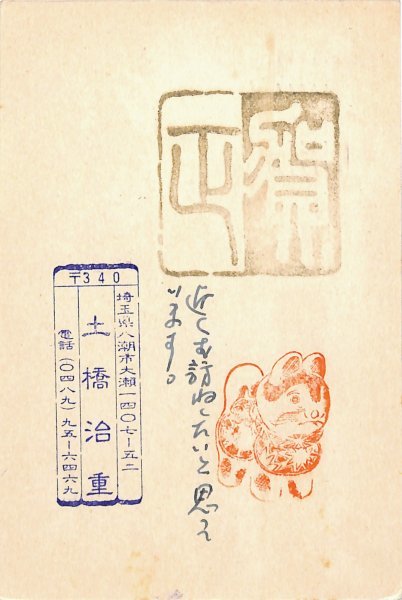 賀正
近くお訪ねしたいと思って
います。
〒340
埼玉県八潮市大瀬一四〇七－五二
土橋治重
電話（〇四八九）九五－六四六九